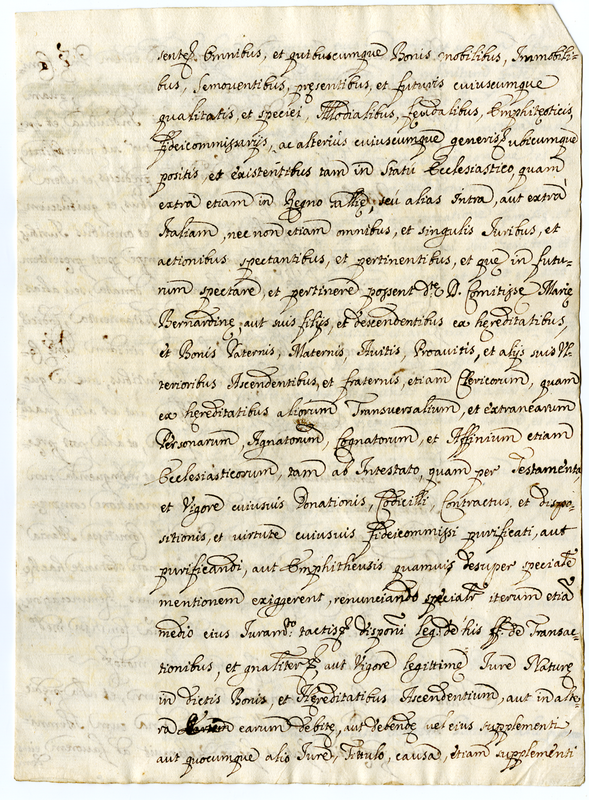 sentes Omnibus, et quibuscumque Bonis mobilibus, Immobili-
bus, Semoventibus, presentibus, et futuris cuiuscumque
qualitatis, et speciei, Allodialibus, feudalibus, Emphiteoticis,
fideicommissarijs, ac alterius cuiuscumque generis, ubicumque
positis, et existentibus tam in Statu Ecclesiastico, quam
extra etiam in Regno Gallię, seu alias Intra, aut extra
Italiam, nec non etiam omnibus, et singulis Iuribus, et
actionibus spectantibus, et pertinentibus, et que in futu-
rum spectare, et pertinere possent dte D. Comitisse Marię
Bernardinę, aut suis filijs, et descendentibus ex hereditatibus,
et Bonis Paternis, Maternis, Avitis, Proavitis, et alijs suis Ul-
terioribus Ascendentibus, et fraternis, etiam Clericorum, quam
ex hereditatibus aliorum Transversalium, et extranearum
Personarum, Agnatorum, Cognatorum, et Affinium etiam
Ecclesiasticorum, tam ab Intestato, quam per Testamenta,
et Vigore cuiusuis Donationis, Codicilli, Contractus, et dispo-
sitionis, et virtute cuiusuis fideicommissi purificati, aut
purificandi, aut Emphitheusis quamuis desuper speciale
mentionem exiggerent, renunciando specialr iterum etia
medio eius Iuramto tactis disponi leg. de his ff. de Transac-
tionibus, et gnaliter, aut Vigore legittime Iure Naturę
in dictis Bonis, et Hereditatibus Ascendentium, aut in alte-
ra earum debite, aut debende vel eius supplementi,
aut quocumque alio Iure, Tittulo, causa, etiam supplementi